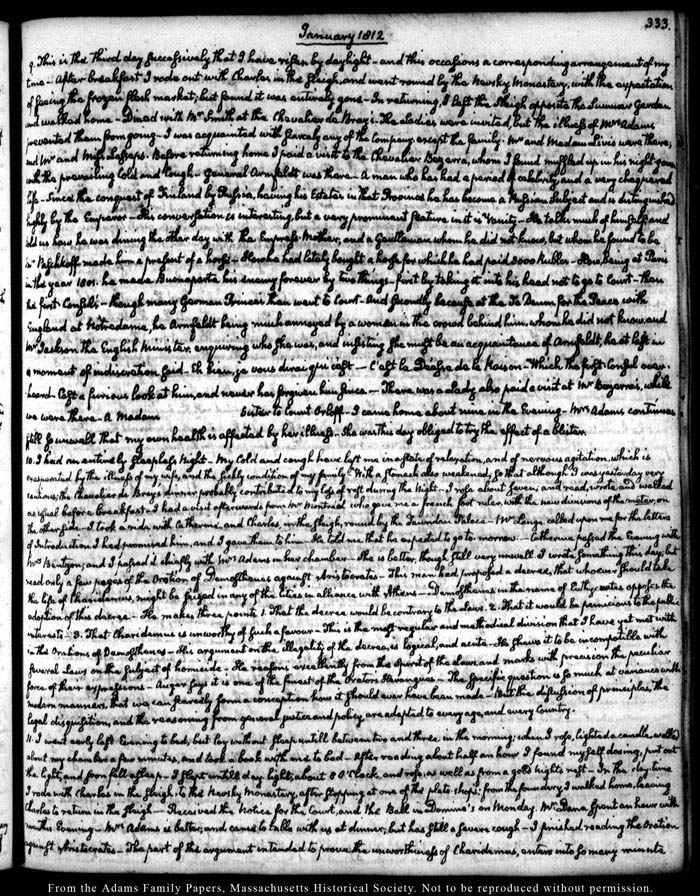 January 1812
333.
9. This is the third day successively that I have risen by daylight - and this occasions a corresponding arrangement of my
time - After breakfast I rode out with Charles in the sleigh, and went round by the Nevsky Monastery, with the expectation
of seeing the frozen flesh market; but found it was entirely gone - In returning, I left the sleigh opposite the Summer Garden
and walked home - Dined with Mr Smith at the Chevalier de Bray's - The ladies were invited, but the illness of Mrs Adams
prevented them from going - I was acquainted with scarcely any of the company except the family. Mr and Madam Livio were there;
and Mr and Miss Lesseps. Before returning home I paid a visit to the Chevalier Bezerra, whom I found muffled up in his night gown
with the prevailing Cold and Cough - General Armfeldt was there - A man who has had a period of celebrity, and a very chequered
life - Since the conquest of Finland by Russia, having his Estates in that Province he has become a Russian Subject and is distinguished
highly by the Emperor - His conversation is interesting, but a very prominent feature in it is Vanity - He talks much of himself, and
told us how he was dining the other day with the Empress Mother, and a Gentleman whom he did not know, but whom he found to be
made him a present of a horse - How he had lately bought a horse for which he had paid 3000 Rubles - How, being at Paris
in the year 1801. he made Buonaparte his enemy forever by two things - first by taking it into his head not to go to Court - than
the first Consul's - though many German Princes then went to Court - And secondly because at the Te Deum for the Peace with
England at Notredame, he Armfeldt being much annoyed by a woman in the crowd behind him, whom he did not know, and
Mr Jackson the English Minister, enquiring who she was, and insisting she must be an acquaintance of Armfeldt, he at last in
a moment of indiscretion said - Eh bien, je vous dirai qui c'est - C'est la Déesse de la Raison - Which the first Consul over-
heard - Cast a furious look at him, and never has forgiven him since. - There was a lady also paid a visit at Mr Bezerra's, while
we were there - A Madame sister to Count Orloff - I came home about nine in the Evening - Mrs Adams continues
still so unwell that my own health is affected by her illness. She was this day obliged to try the effect of a blister.
10. I had an entirely sleepless Night - My Cold and cough have left me in a state of relaxation, and of nervous agitation, which is
by the illness of my wife, and the sickly condition of my family. With a stomach also weakened, so that although I was yesterday very
the Chevalier de Bray's dinner probably contributed to my loss of rest during the Night - I rose about seven, and read, wrote and walked
as usual before breakfast - I had a visit afterwards from Mr Montreal who gave me a french foot ruler with the new divisions of the meter, on
the other side - I took a ride with Catherine and Charles, in the sleigh, round by the Taurida Palace - Mr Lange called upon me for the letters
of Introduction I had promised him, and I gave them to him - He told me that he expected to go to-morrow. - Catherine passed the Evening with
Mrs Bentzon; and I passed it chiefly with Mrs Adams in her chamber - She is better, though still very unwell. I wrote something this day, but
read only a few pages of the Oration of Demosthenes against Aristocrates - This man had proposed a decree, that whoever should take
the life of Charidemus, might be seized in any of the Cities in alliance with Athens - Demosthenes in the name of Euthycrates opposes the
adoption of this decree - He makes three points 1. That the decree would be contrary to the laws. 2. That it would be pernicious to the public
interest. - 3. That Charidemus is unworthy of such a favour - This is the most regular and methodical division that I have yet met with
in the Orations of Demosthenes - His argument on the illegality of the decree, is logical, and acute - He shews it to be incompatible with
several Laws on the subject of homicide - He reasons excellently from the spirit of the laws and marks with precision the peculiar
force of their expressions - Auger says it is one of the finest of the Orators Harangues - The specific question is so much at variance with
modern manners, that we can scarcely form a conception how it should ever have been made - But the discussion of principles, the
legal disquisition, and the reasoning from general justice and policy, are adapted to every age, and every Country.
11. I went early last Evening to bed, but lay without sleep untill between two and three in the morning; when I rose, lighted a candle, walked
about my chamber a few minutes, and took a book with me to bed - After reading about half an hour I found myself dosing, put out
the light, and soon fell asleep - I slept untill day light, about 8 O'Clock, and rose, as well as from a good Night's rest - In the day time
I rode with Charles in the Sleigh, to the Nevsky Monastery, after stopping at one of the plate shops; from the foundery I walked home, leaving
Charles to return in the Sleigh - Received the Notice for the Court, and the Ball in Domino's on Monday. Mr Dana spent an hour with
me this Evening - Mrs Adams is better, and came to table with us at dinner; but has still a severe cough - I finished reading the Oration
against Aristocrates - The part of the argument intended to prove the unworthiness of Charidemus, enters into so many minute
From the Adams Family Papers, Massachusetts Historical Society. Not to be reproduced without permission.